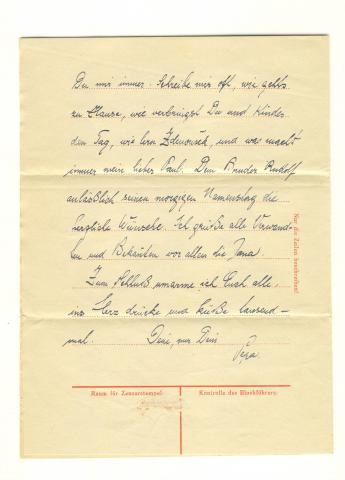 Du mir immer. Schreibe mir oft, wie gehts
zu Hause, wie verbringst Du und Kinder
den Tag, wie lernt Zdenoušek, und was macht
immer mein lieber Paul. Dem Bruder Rudolf
anläßlich seinen morgigen Namenstag die
herzliche Wünsche. Ich grüße alle Verwand-
ten und Bekannten vor allen die Jana.
Zum Schluß umarme ich Euch alle,
ins Herz drücke und küße tausend-
mal. Dein, nur Dein
Pepa
Nur die Zeilen beschreiben!
Raum für Zensurstempel:
Kontrolle des Blockführers: